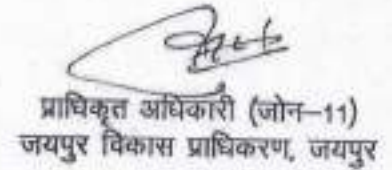 प्राधिकृत अधिकारी (जोन–11)
जयपुर विकास प्राधिकरण, जयपुर